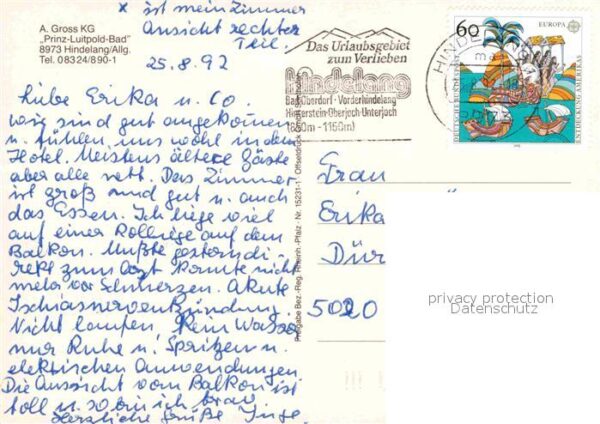 x ist mein Zimmer
Aussicht rechter
Teil.
A. Gross KG
„Prinz-Luitpold-Bad"
8973 Hindelang/Allg.
Tel. 08324/890-1
25.8.92
Liebe Erika u. Co.
wir sind gut angekommen
u. fühlen uns wohl in dem
Hotel. Meistens ältere Gäste
aber alle nett. Das Zimmer
ist groß und gut u. auch
das Essen. Ich liege viel
auf einer Rolliege auf dem
Balkon. Mußte gestern di-
rekt zum Arzt konnte nicht
mehr vor Schmerzen. Akute
Ischiasnervenentzündung.
Nicht laufen, kein Wasser
nur Ruhe u. Spritzen u.
elektrischen Anwendungen.
Die Aussicht vom Balkon ist
toll u. so bin ich brav
Herzliche Grüße Inge.
Das Urlaubsgebiet
zum Verlieben
Hindelang
Bad Oberdorf-Vorderhindelang
Hinterstein-Oberjoch-Unterjoch
(850m - 1150m)
HINDELANG
60
EUROPA
DEUTSCHE BUNDESPOST
ENTDECKUNG AMERIKAS
Freigabe Bez.-Reg. Rheinh.-Pfalz - Nr. 15231-1 Offsetdruck
Frau
Erika
Dür
5020
privacy protection
Datenschutz